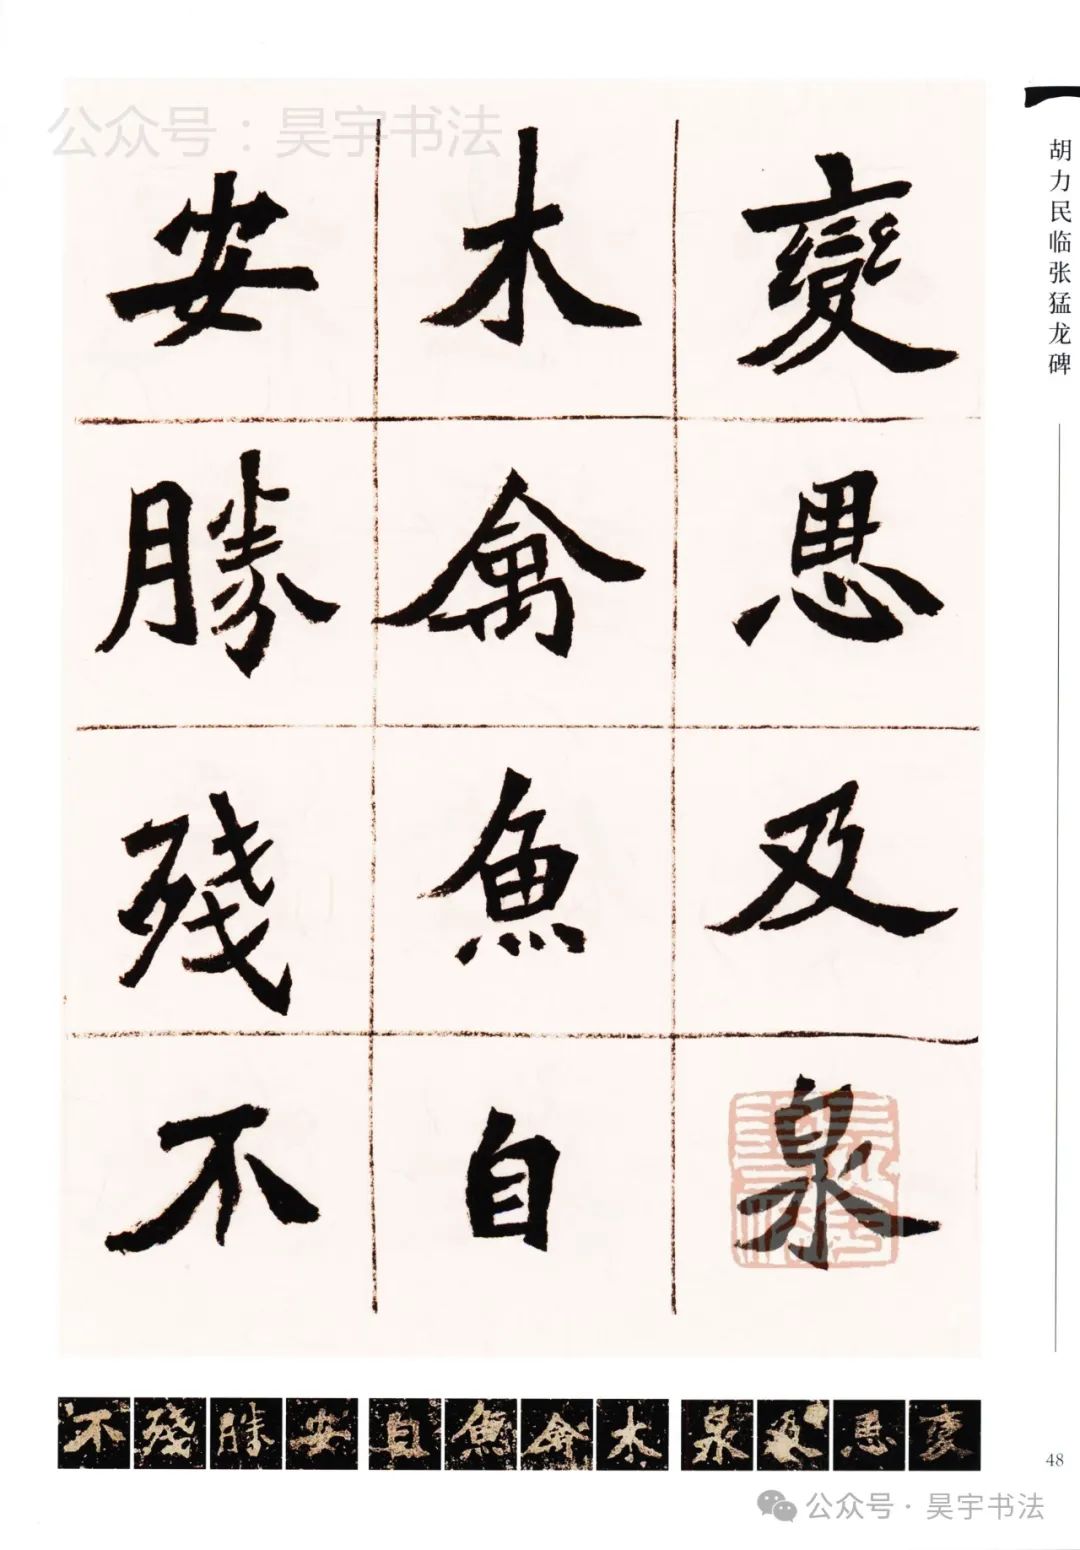 公众号：昊宇书法
胡力民临张猛龙碑
變思及泉
木禽魚自
安勝殘不
變思及泉木禽魚自安勝殘不
48
公众号·昊宇书法